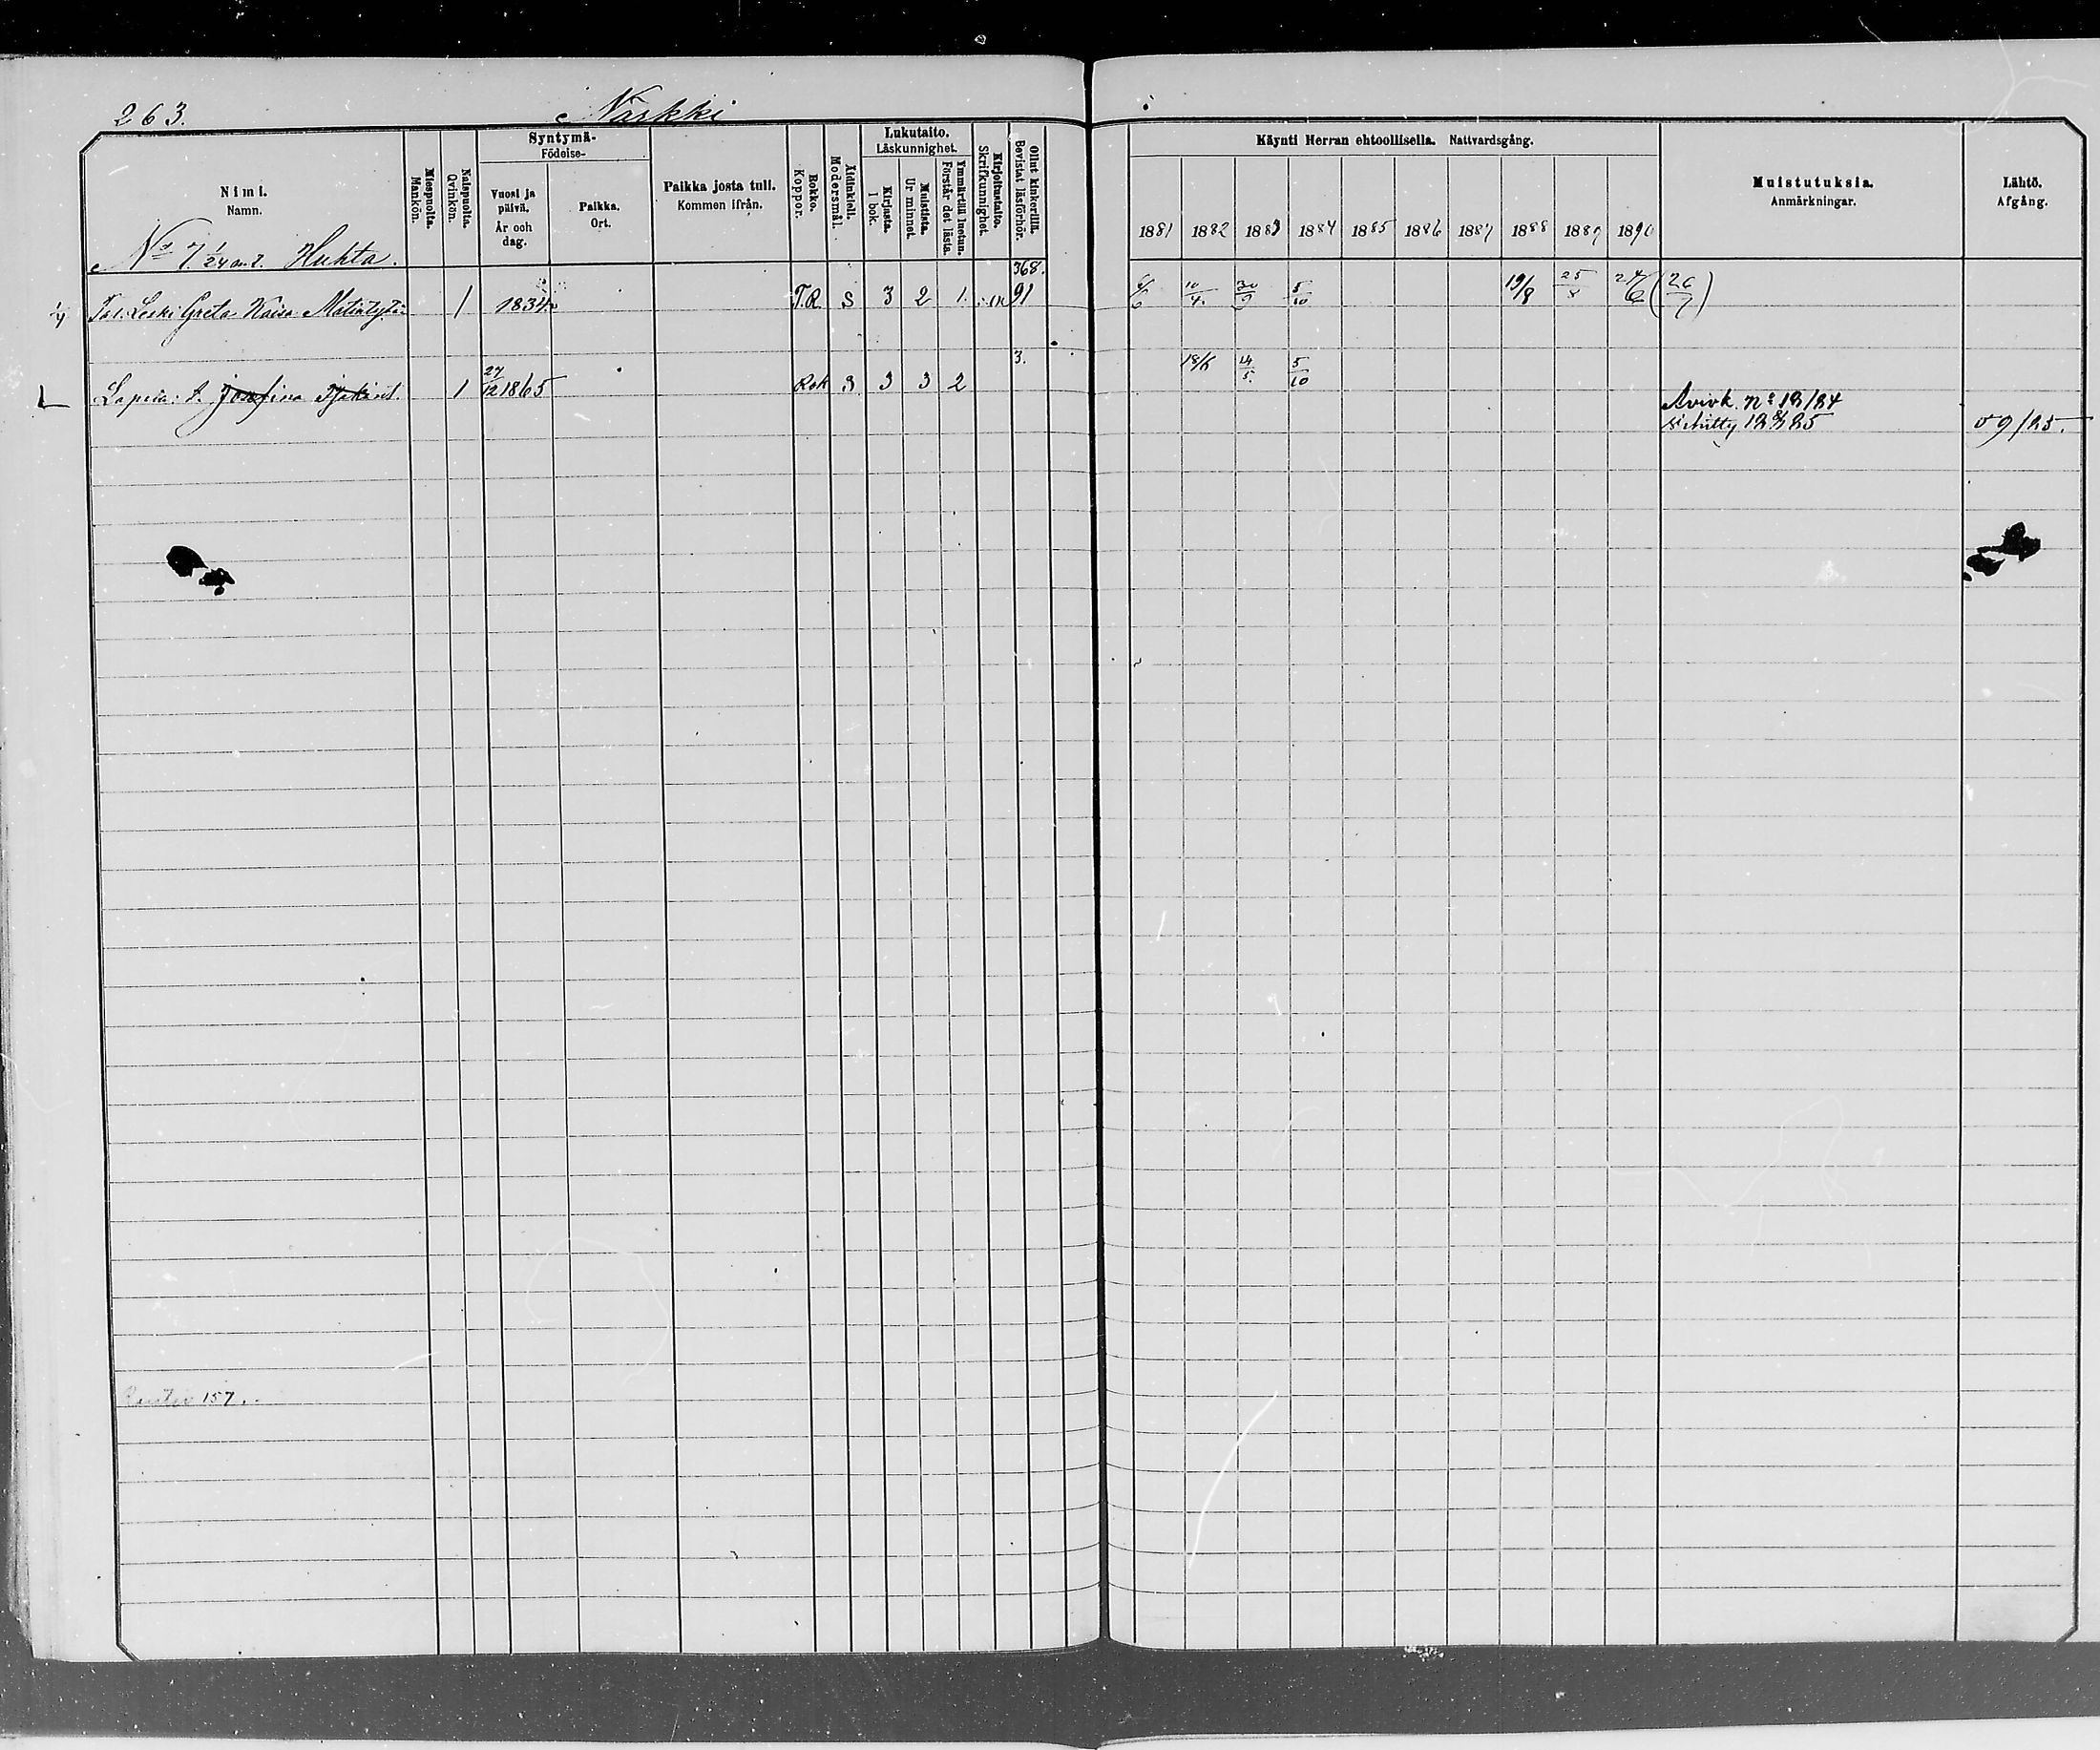 263. Närkki
Nimi. Namn.
Miespuolta. Mankön.
Naispuolta. Qvinkön.
Syntymä- Födelse-
Vuosi ja päivä. År och dag.
Paikka. Ort.
Paikka josta tull. Kommen ifrån.
Rokko. Koppor.
Äidinkieli. Modersmål.
Lukutaito. Läskunnighet.
Kirjasta. I bok.
Muistista. Ur minnet.
Ymmärtää luetun. Förstår det lästa.
Kirjoitustaito. Skrifkunnighet.
Ollut kinkerillä. Bevistat läsförhör.
Käynti Herran ehtoollisella. Nattvardsgång.
1881 1882 1883 1884 1885 1886 1887 1888 1889 1890
Muistutuksia. Anmärkningar.
Lähtö. Afgång.
No 7. 1/24 Huhta.
368.
Leski Greta Kaisa 1 1834 T.R. S 3 2 1. 91 10/4. 30/9 5/10 19/8 25/8 24/6 (26/7)
3. 18/6 14/5. 5/10
Lapsia: t. Josefina 1 27/12 1865 Rok S 3 3 2
Aviok. No
09/85.
157.